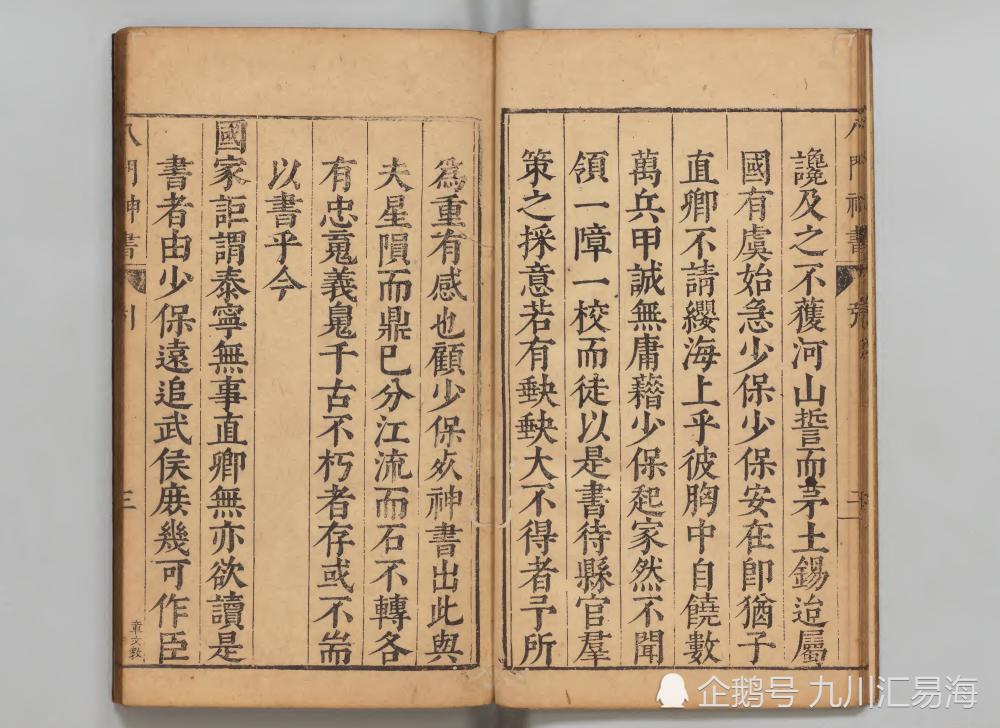 讒及之不獲河山誓而茅土錫迨屬
國有虞始急少保少保安在卽猶子
直卿不請纓海上乎彼胸中自饒數
萬兵甲誠無庸藉少保起家然不聞
領一障一校而徒以是書待縣官羣
策之採意若有䡬䡬大不得者予所
為重有感也顧少保歿神書出此與
夫星隕而鼎巳分江流而石不轉各
有忠䰟義鬼千古不朽者存或不耑
以書乎今
國家詎謂泰寧無事直卿無亦欲讀是
書者由少保遠追武侯庶幾可作臣
八門神書
引
三
章文敎
企鹅号 九川汇易海